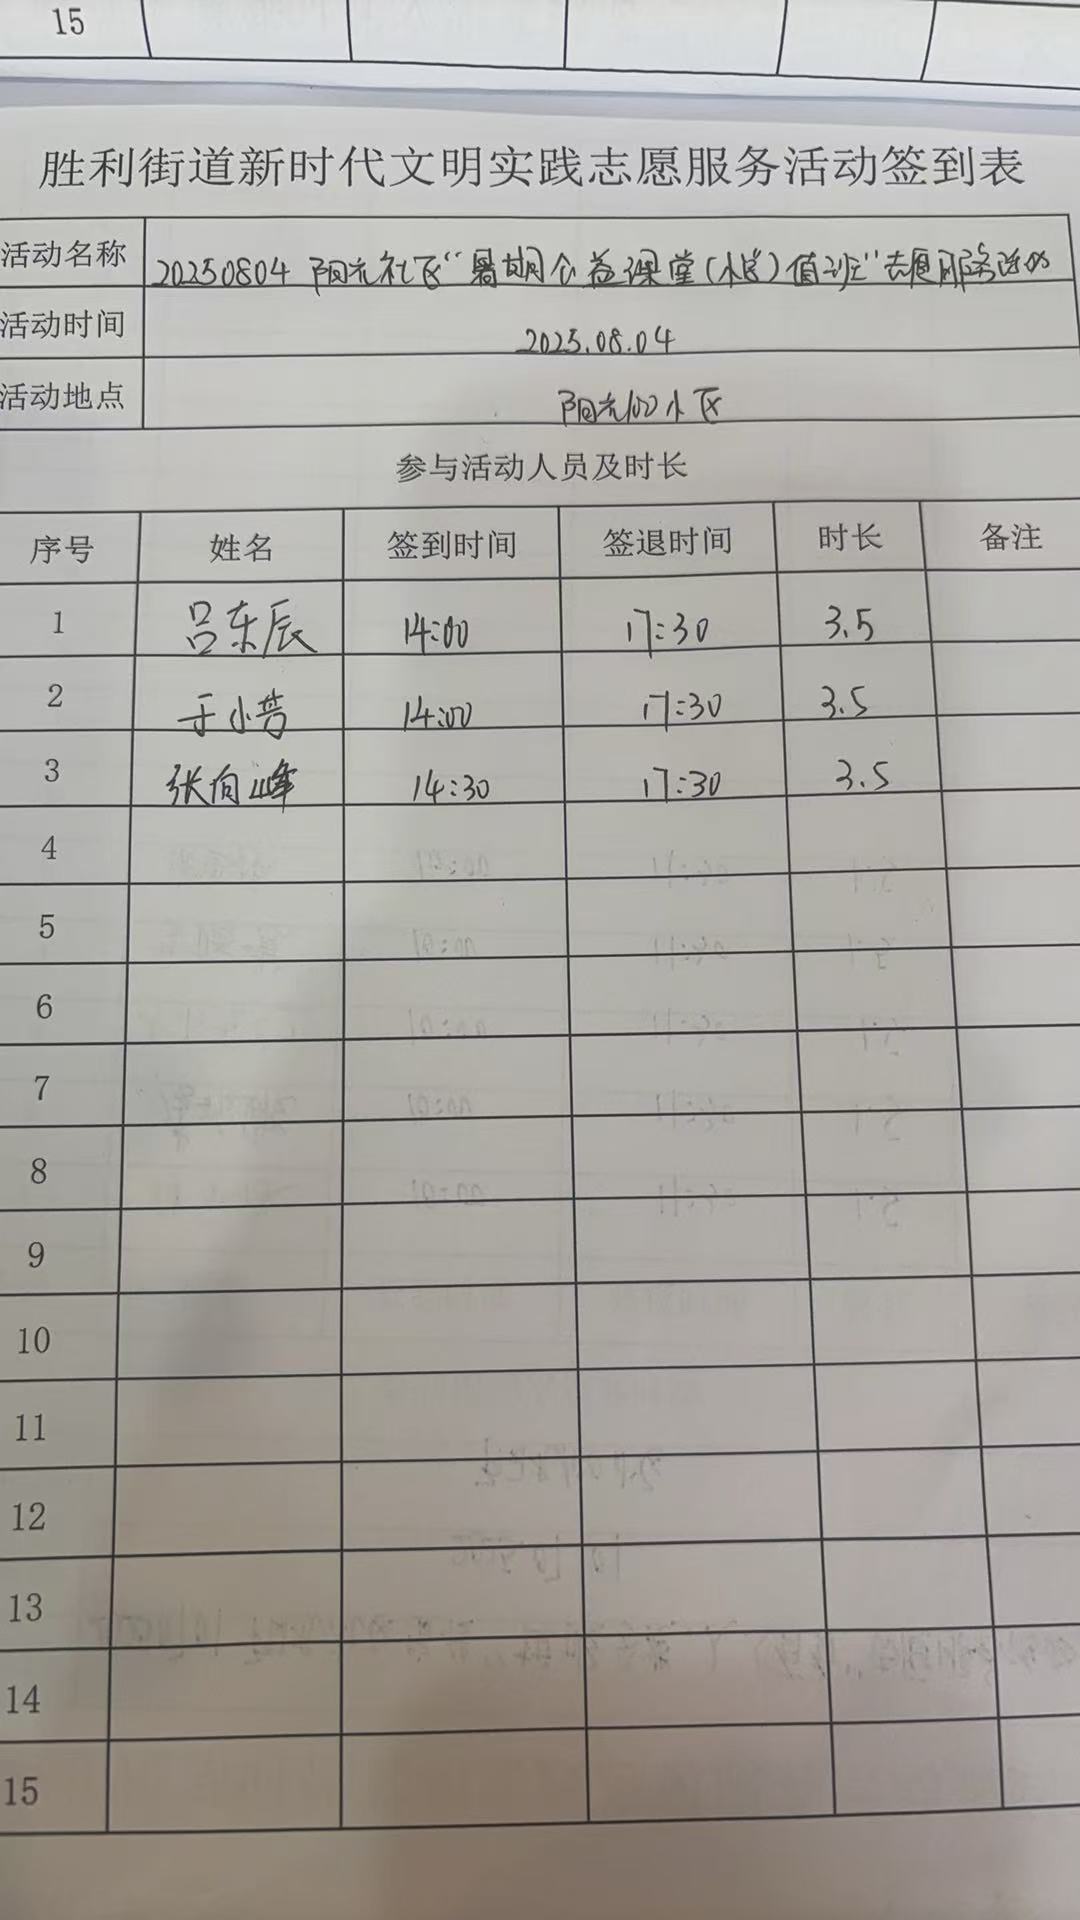 15
胜利街道新时代文明实践志愿服务活动签到表
活动名称 20250804 阳光社区“暑期公益课堂()值班”志愿服务活动
活动时间 2025.08.04
活动地点 阳光100小区
参与活动人员及时长
序号 姓名 签到时间 签退时间 时长 备注
1 吕东辰 14:00 17:30 3.5
2 于小芳 14:00 17:30 3.5
3 张向峰 14:30 17:30 3.5
4
5
6
7
8
9
10
11
12
13
14
15